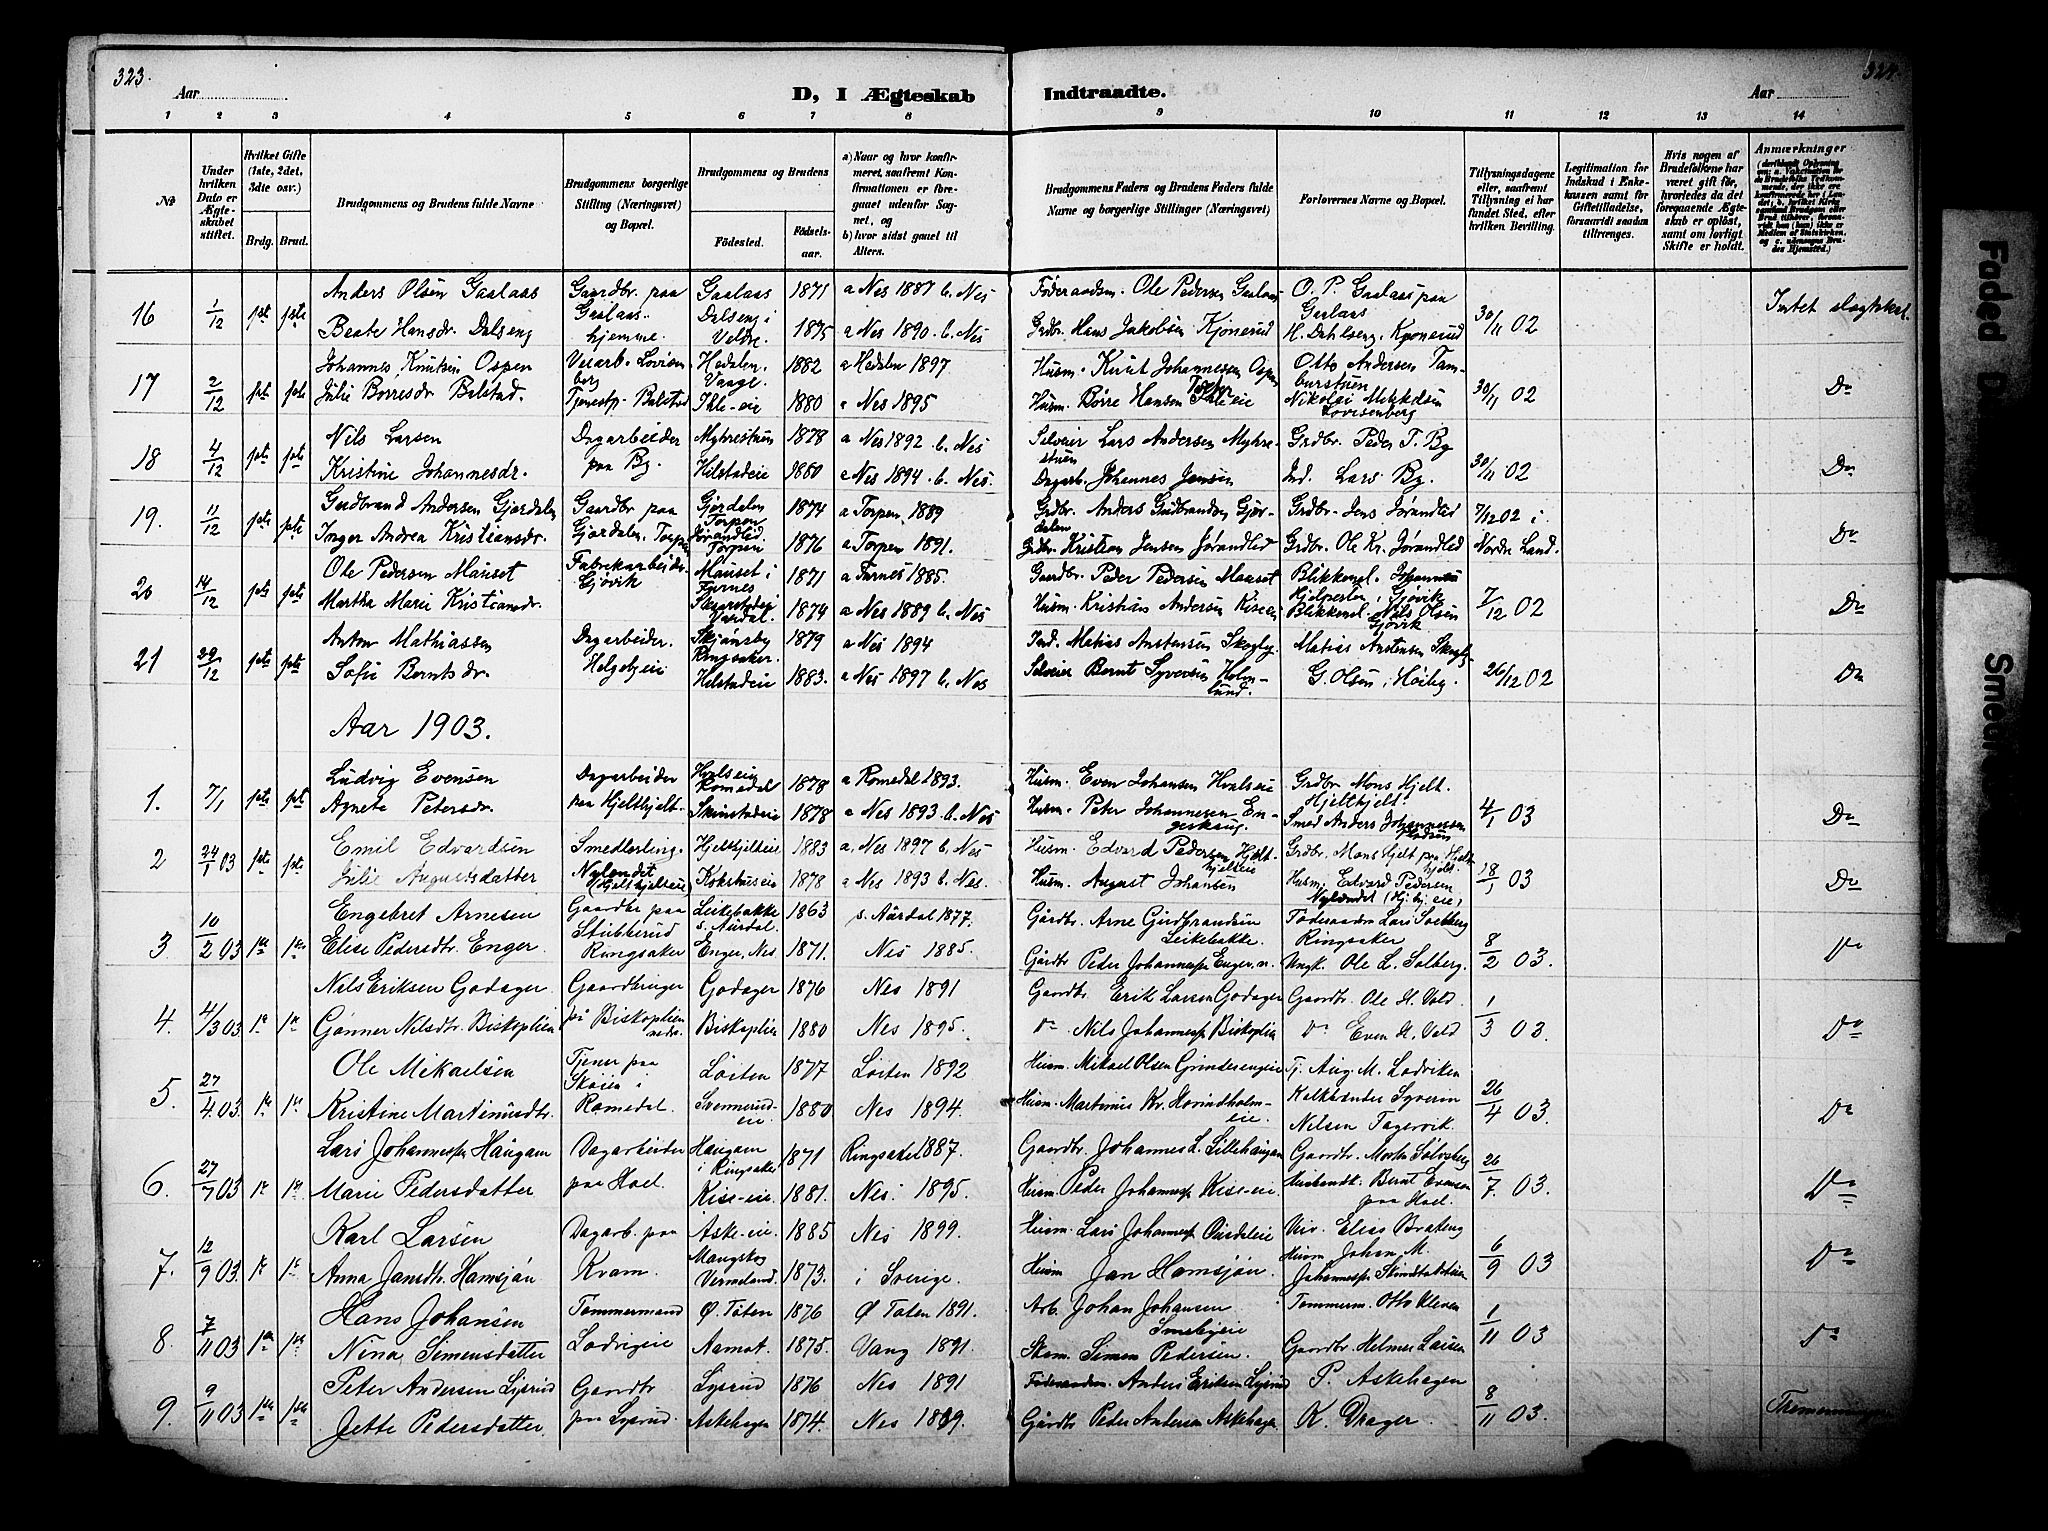 323.
324.
Aar
D, I Ægteskab Indtraadte.
Aar
1 2 3 4 5 6 7 8 9 10 11 12 13 14
№
Under hvilken Dato er Ægteskabet stiftet.
Hvilket Gifte (1ste, 2det, 3die osv.)
Brdg. Brud.
Brudgommens og Brudens fulde Navne
Brudgommens borgerlige Stilling (Næringsvei) og Bopæl.
Brudgommens og Brudens
Födested.
Födselsaar.
a) Naar og hvor konfirmeret, saafremt Konfirmationen er foregaaet udenfor Sognet, og
b) hvor sidst gaaet til Alters.
Brudgommens Faders og Brudens Faders fulde Navne og borgerlige Stillinger (Næringsvei)
Forlovernes Navne og Bopæl.
Tillysningsdagene eller, saafremt Tillysning ei har fundet Sted, efter hvilken Bevilling.
Legitimation for Indskud i Enkekassen samt for Giftetilladelse, forsaavidt saadan tiltrænges.
Hvis nogen af Brudefolkene har været gift før, hvorledes da det foregaaende Ægteskab er opløst, samt om lovligt Skifte er holdt.
Anmærkninger
16 1/12 1ste 1ste Anders Olsen Gaalaas Gaardbr. paa Gaalaas. Gaalaas 1871 a Nes 1887 b. Nes Føderaadsm. Ole Pedersen Gaalaas O. P. Gaalaas paa Gaalaas 30/11 02
Beate Hansdr. Dalseng hjemme. Dalseng i Veldre. 1875 a Nes 1890. b. Nes Grdbr. Hans Jakobsen Kjønerud H. Dahlseng, Kjønerud
17 2/12 Johannes Knutsen Ospen Veiarb. Lovisenberg Hedalen, Vaage. 1882 a Hedalen 1897 Husm. Knut Johannesen Ospen Otto Andersen Tamburstuen 30/11 02 Do
Julie Børresdr. Balstad. Tjenestp. Balstad Ihle-eie 1880 a Nes 1895 Husm. Børre Hansen Ihle-eie Nikolai Mikkelsen Lovisenberg
18 4/12 Nils Larsen Dagarbeider paa By. Myhrestuen 1878 a Nes 1892 b. Nes Selveier Lars Andersen Myhrestuen Grdbr. Peder T. By 30/11 02 Do
Kristine Johannesdr. Helstadeie 1880 a Nes 1894. b. Nes. Dagarb. Johannes Jensen Ind. Lars By.
19. 11/12 Gudbrand Andersen Gjørdalen Gaardbr. paa Gjørdalen, Torpen Gjørdalen Torpen 1874 a Torpen 1889 Grdbr. Anders Gudbrandsen Gjørdalen Grdbr. Jens Jørandlid 7/12 02 i Nordre Land. Do
Inger Andrea Kristiansdr. Jørandlid Torpen 1876 a Torpen 1891. Grdbr. Kristian Jensen Jørandlid Grdbr. Ole Kr. Jørandlid
20 14/12 Ole Pedersen Mauset Fabrikarbeider Gjøvik Mauset i 1871 1885. Gaardbr. Peder Pedersen Mauset Blikkensl. Johannes Gjøvik 7/12 02 Do
Martha Marie Kristiansdr. Vardal. 1874 a Nes 1889 b. Nes Husm. Kristian Andersen Kiseeie Blikkensl. Nils Olsen Gjøvik
21 29/12 Anton Mathiassen Dagarbeider. Helgebyeie Ringsaker. 1879 a Nes 1894 Ind. Matias Anstensen Skogby. Matias Anstensen Skogby 26/12 02 Do
Sofie Berntsdr. Helstadeie 1883. a Nes 1897 b. Nes Selveier Bernt Syversen Holmlund. G. Olsen i Høiby.
Aar 1903.
1. 7/1 Ludvig Evensen Dagarbeider paa Hjelthjelt. Hvalseie Romedal 1878 a Romedal 1893. Husm. Even Johansen Hvalseie Grdbr. Mons Hjelt. Hjelthjelt. 4/1 03 Do
Agnete Petersdr. Skinstadeie 1878 a Nes 1893 b. Nes Husm. Peter Johannesen Engeskaug. Smed Anders Johannessen
2 24/1 03 Emil Edvardsen Smedlerling. Nylendet (Hjelthjelteie) Hjelthjelteie 1883 a. Nes 1897 b. Nes Husm. Edvard Pedersen Hjelthjelteie Grdbr. Mons Hjelt paa Hjelthjelt. 18/1 03 Do
Julie Augustsdatter Kokshuseie 1878 a Nes 1893 b. Nes. Husm. August Johansen Husm. Edvard Pedersen Nylendet (Hj.hj.eie)
3 10/2 03 Engebret Arnesen Gaardbr. paa Stubberud Ringsaker Leikebakke S. Aurdal. 1863 S. Aurdal 1877. Gårdbr. Arne Gudbrandsen Leikebakke. Føderaadsm. Lars Solberg Ringsaker 8/2 03. Do
Elise Pedersdtr. Enger. Enger, Nes 1871. Nes 1885. Gårdbr Peder Johannessen Enger. n. Ungk. Ole L. Solberg.
4. 4/3 03 Nils Eriksen Godager. Gaardbruger på Biskoplien nedr. Godager 1876 Nes 1891 Gaardbr. Erik Larsen Godager Gaardbr. Ole H. Vold. 1/3 03. Do
Gunner Nilsdtr. Biskoplien Biskoplien 1880 Nes 1895. Do Nils Johannessen Biskoplien Do Even H. Vold
5. 27/4 03. Ole Mikaelsen Tjener paa Skøien i Romedal. Løiten 1877 Løiten 1892 Husm. Mikael Olsen Grinderengeie Tj. Aug. M. Lodviken 26/4 03. Do
Kristine Martinusdtr. Svennerudeie. 1880 Nes 1894. Husm. Martinus Kr. Hovindholmeie. Kalkbrænder Syvern Nilsen Tagervik.
6. 27/7 03 Lars Johannessen Haugam Dagarbeider paa Hoel. Haugam i Ringsaker 1871 Ringsaker 1887. Gaardbr. Johannes L. Lillehaugen Gaardbr. Morten Sølvsberg 26/7 03. Do
Marie Pedersdatter Kise-eie. 1881. Nes 1895. Husm. Peder Johannessen Kise-eie. Husbondk. Bernt Evensen paa Hoel.
7. 12/9 03 Karl Larsen Dagarb. paa Kvam. Aske-eie. 1885 Nes 1899. Husm. Lars Johannessen Elias Brateng 6/9 03 Do
Anna Jansdtr. Hamsjøn Mangskog Vermeland. 1873. i Sverige. Husm Jan Hamsjøn. Husm Johan M. Johannessen
8. 7/11 03 Hans Johansen Tømmermand Lodvigeie Ø. Toten 1876 Ø Toten 1891. Arb. Johan Johansen Smebyeie Tømmerm. Otto Kleven 1/11 03 Do
Nina Simensdatter Aamot. 1875. Vang 1891. Skom. Simen Pedersen. Gaardbr. Helmer Larsen
9. 9/11 03 Peter Andersen Lysrud Gaardbr. paa Lysrud. Lysrud 1876 Nes 1891 Føderaadsm. Anders Eriksen Lysrud P. Askehagen 8/11 03. Tremenninger
Jette Pedersdatter Askehagen 1874. Nes 1889. Gårdbr. Peder Andersen Askehagen K. Drager.
Faded